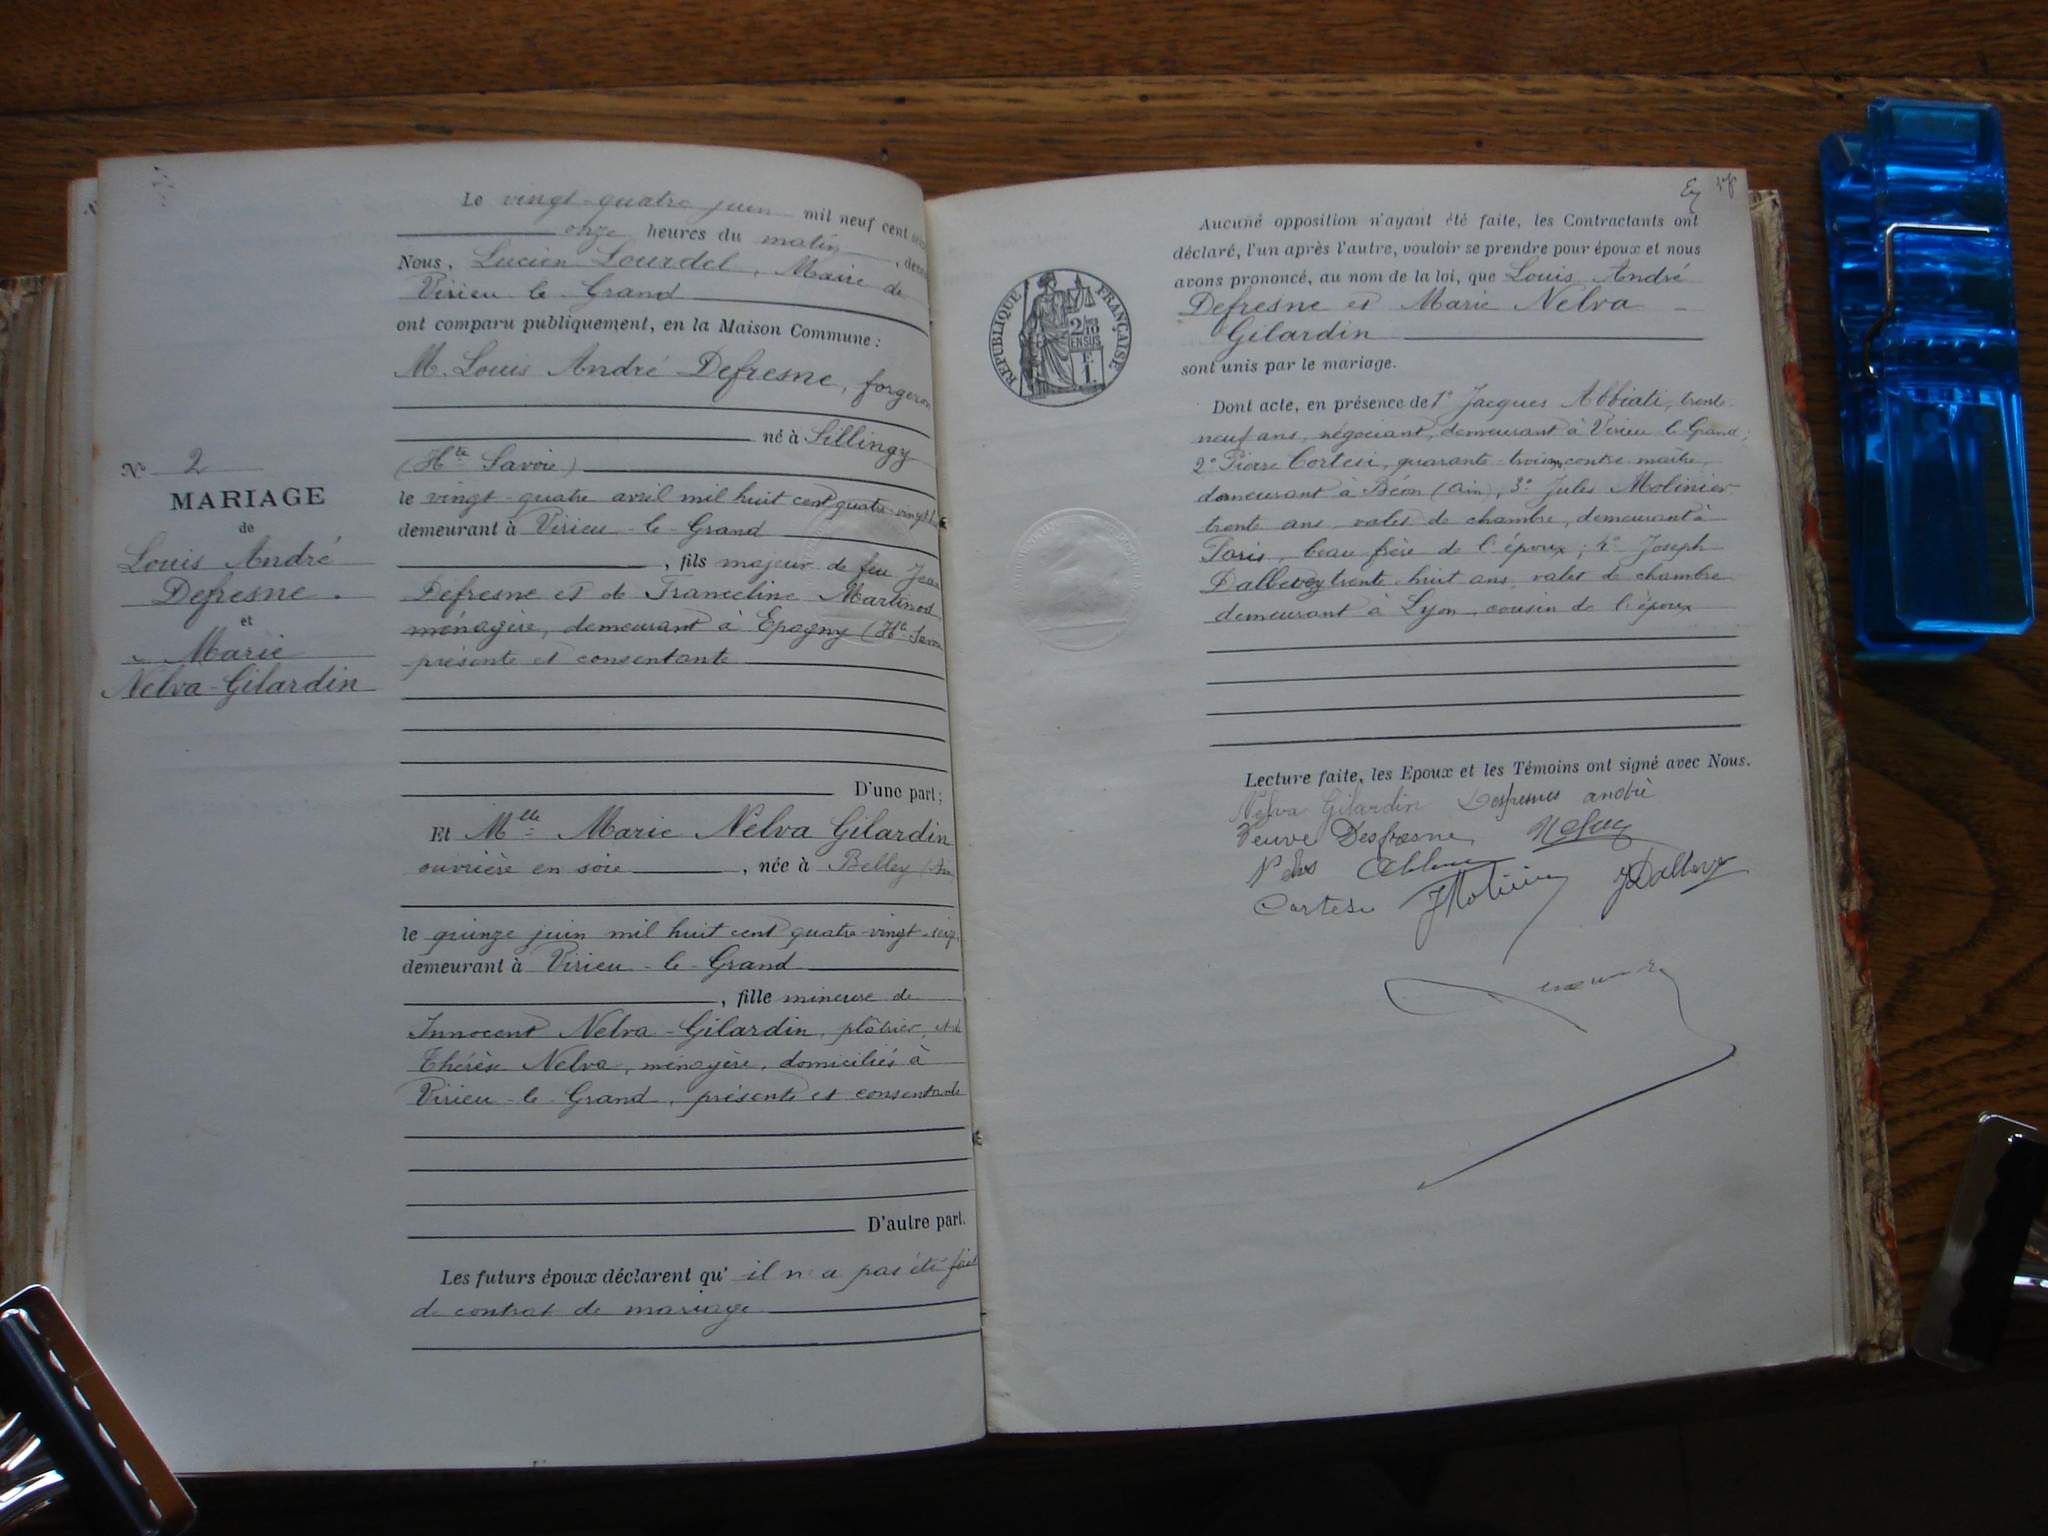 Le vingt-quatre juin mil neuf cent
onze heures du matin,
Nous, Lucien Lourdel, Maire de
Virieu-le-Grand
ont comparu publiquement, en la Maison Commune :
M. Louis André Defresne, forgeron
né à Sillingy
(Hte Savoie)
le vingt-quatre avril mil huit cent quatre-vingt
demeurant à Virieu-le-Grand
, fils majeur de feu Jean
Defresne et de Franceline Martinod
ménagère, demeurant à Epagny (Hte Savoie
présente et consentante
D'une part ;
Et Mlle Marie Nelva Gilardin
ouvrière en soie, née à Belley (Ain
le quinze juin mil huit cent quatre-vingt-seize
demeurant à Virieu-le-Grand
, fille mineure de
Innocent Nelva-Gilardin, plâtrier, et de
Thérèse Nelva, ménagère, domiciliés à
Virieu-le-Grand, présents et consentants
D'autre part.
Les futurs époux déclarent qu' il n'a pas été fait
de contrat de mariage
No 2
MARIAGE
de
Louis André
Defresne.
et
Marie
Nelva-Gilardin
Aucune opposition n'ayant été faite, les Contractants ont
déclaré, l'un après l'autre, vouloir se prendre pour époux et nous
avons prononcé, au nom de la loi, que Louis André
Defresne et Marie Nelva
Gilardin
sont unis par le mariage.
Dont acte, en présence de 1° Jacques Abbiati, trente
neuf ans, négociant, demeurant à Virieu le Grand;
2° Pierre Cortesi, quarante-trois ans, contre maître,
demeurant à Béon (Ain); 3° Jules Molinier
trente ans valet de chambre, demeurant à
Paris, beau frère de l'époux; 4° Joseph
Dalbevey trente huit ans valet de chambre
demeurant à Lyon, cousin de l'époux
Lecture faite, les Epoux et les Témoins ont signé avec Nous.
Nelva Gilardin Desfresnes andré
Veuve Desfresne
Cortesi JMolinier JDalbevey
RÉPUBLIQUE FRANÇAISE
2/10
EN SUS
F.
1.